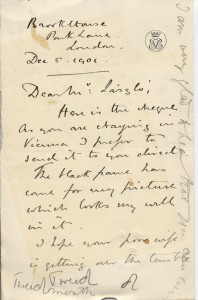 Brook House
Park Lane,
London.
Dec 5. 1901.
Dear Mr. László,
Here is the cheque
As you are staying in
Vienna I prefer to
send it to you direct
The black frame has
come for my picture
which looks very well
in it.
I hope your poor wife
is getting over the terrible
I am very glad to hear that